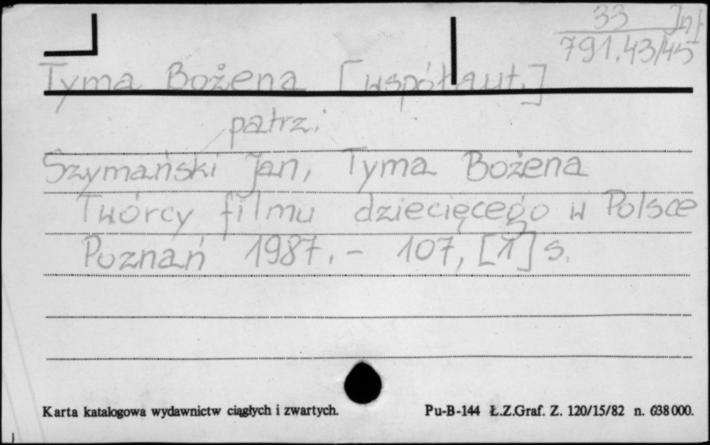 33 Inf
791.43/45
Tyma Bożena [współaut.]
patrz.
Szymański Jan, Tyma Bożena
Twórcy filmu dziecięcego w Polsce
Poznań 1987. - 107, [1] s.
Karta katalogowa wydawnictw ciągłych i zwartych.
Pu-B-144 Ł.Z.Graf. Z. 120/15/82 n. 638000.